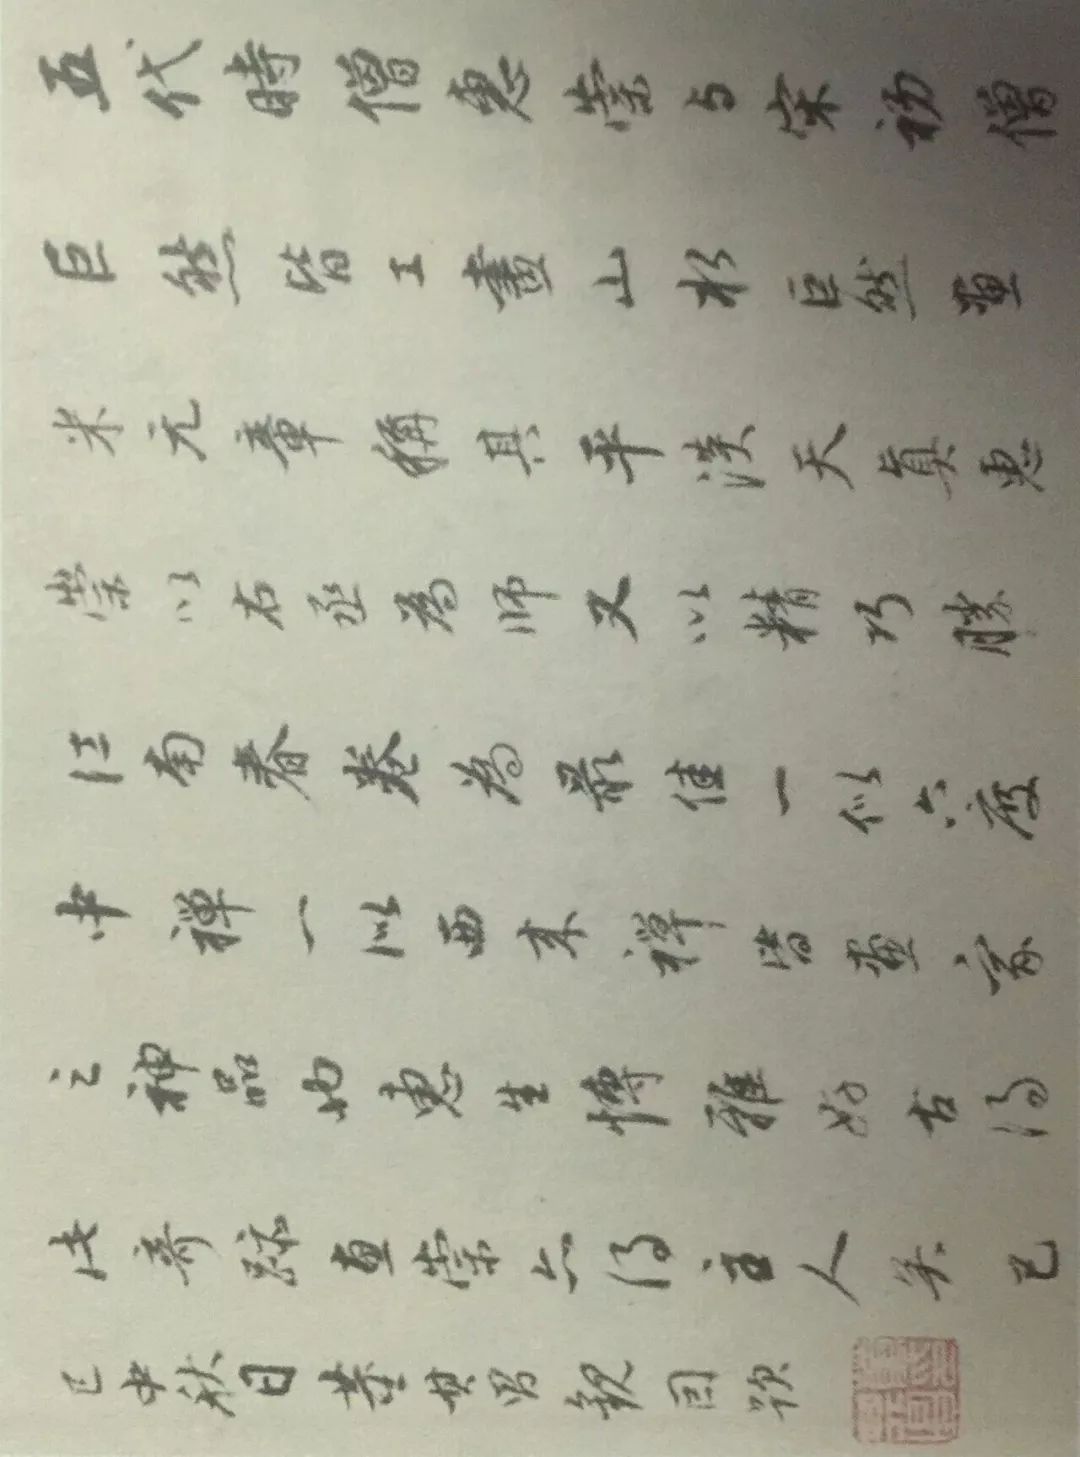 五代時僧惠崇与宋初僧
巨然皆工畫山水巨然畫
米元章稱其平淡天真惠
崇以右丞為師又以精巧勝
江南春卷為最佳一似六度
中禪一似西來禪皆畫家
之神品也惠生博雅好古得
此奇跡惠崇亦得主人矣己
巳中秋日董其昌觀因題